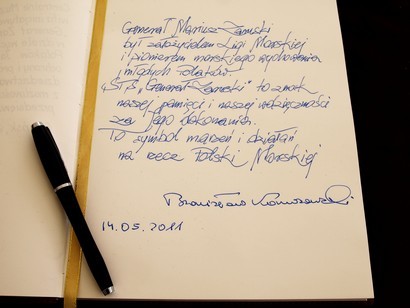 Generał Mariusz Zaruski
był założycielem Ligi Morskiej
i pionierem morskiego wychowania
młodych Polaków.
STS „Generał Zaruski" to znak
naszej pamięci i naszej wdzięczności
za Jego dokonania.
To symbol marzeń i działań
na rzecz Polski Morskiej
Bronisław Komorowski
14.05.2011